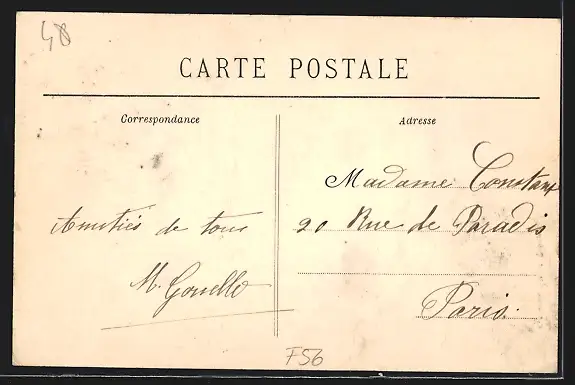 48
CARTE POSTALE
Correspondance
Adresse
Amitiés de tous
M. Gouello
Madame Constant
20 Rue de Paradis
Paris.
F56